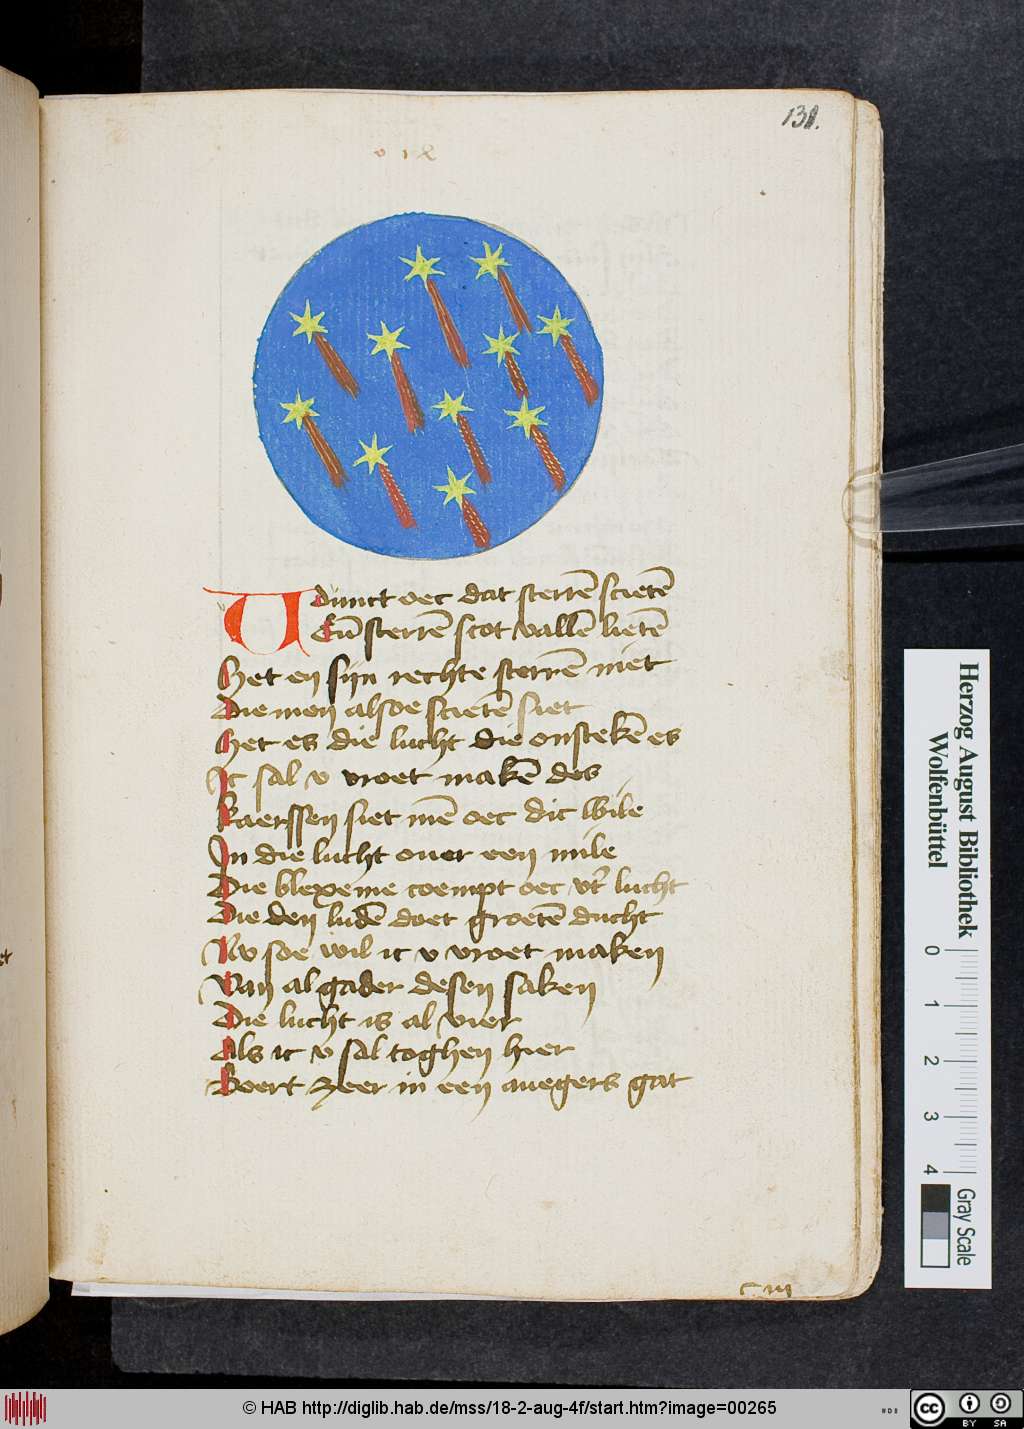 131.
V dunct oec dat sterrē scietē
Eñ sterrē scot vallē lietē
Het en sijn rechte sterrē niet
Die men alsoe scietē siet
Het es die lucht die onstekē es
Ic sal v vroet makē des
Kaerssen siet mē oec dic wile
In die lucht ouer een mile
Die blexeme coempt oec vt' lucht
Die den ludē doet groetē ducht
Nv soe wil ic v vroet maken
Van al gader desen saken
Die lucht is al vier
Als ic v sal toghen hier
Beert zeer in een auegers gat
c iiij
Herzog August Bibliothek
Wolfenbüttel
0 1 2 3 4
Gray Scale
© HAB http://diglib.hab.de/mss/18-2-aug-4f/start.htm?image=00265
cc BY SA